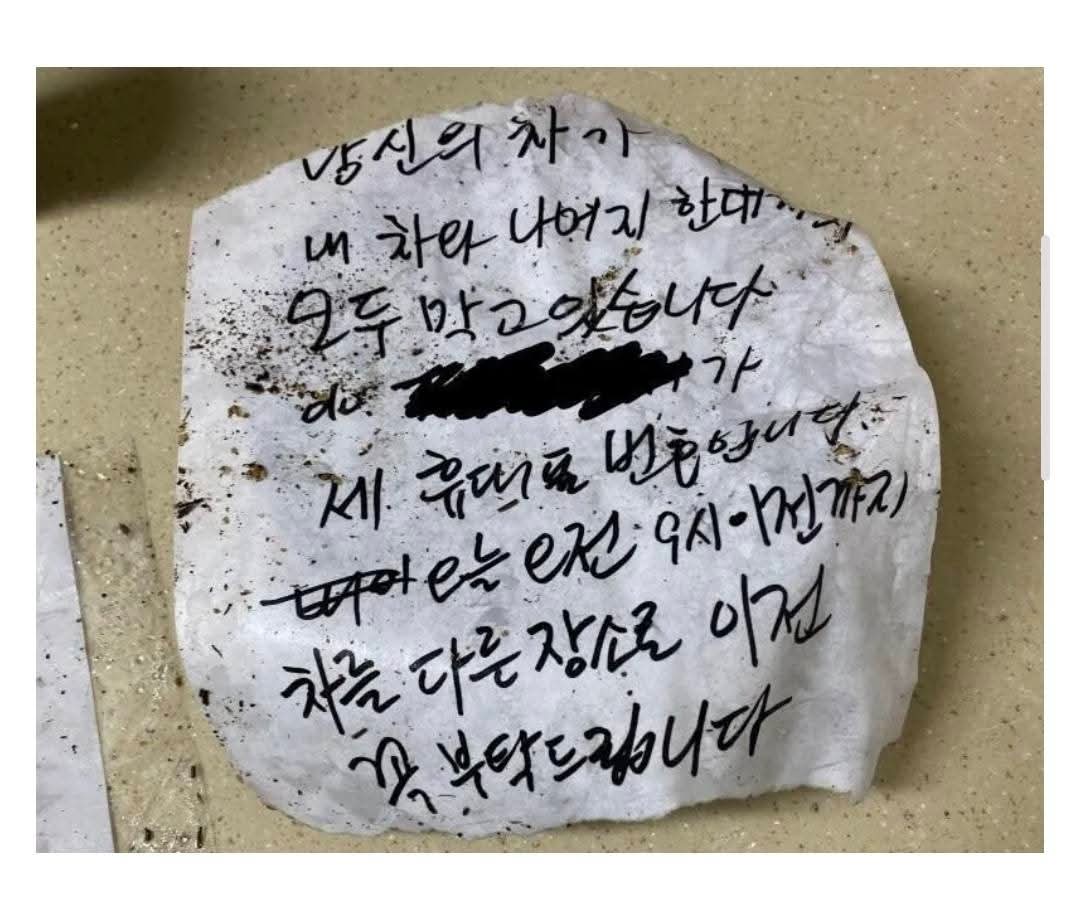 당신의 차가
내 차와 나머지 한대
모두 막고 있습니다
가
제 휴대폰 번호입니다
오늘 오전 9시 이전까지
차를 다른 장소로 이전
꼭 부탁드립니다